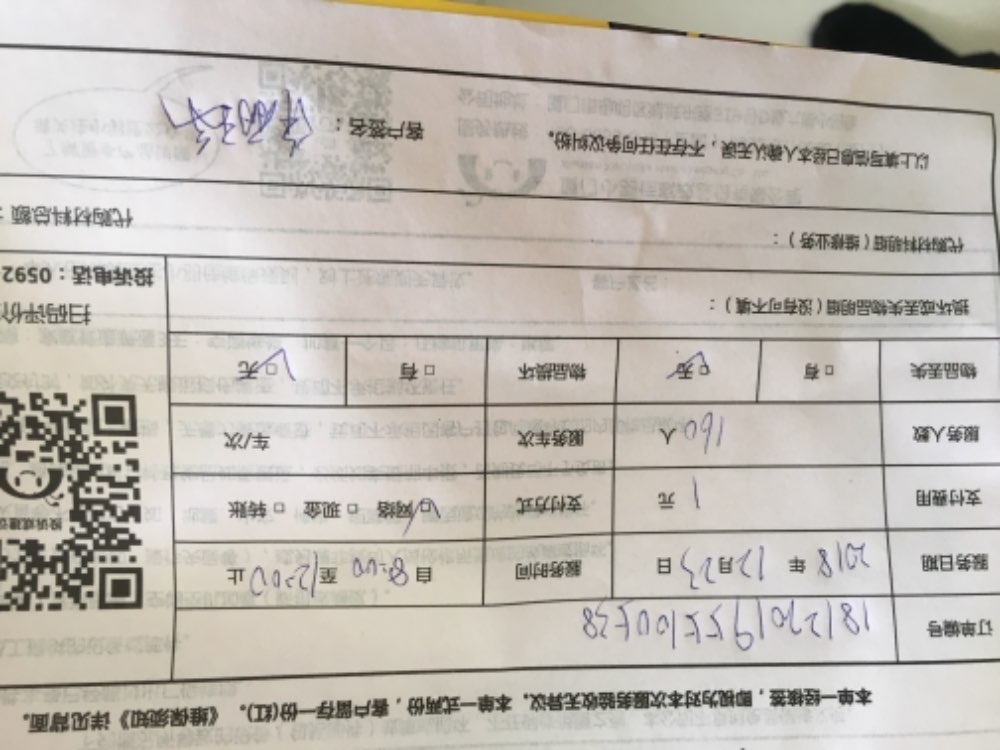 本单一经核签，即视为对本次服务验收无异议。本单一式两份，客户留存一份(红)。《维保须知》详见背面。
订单编号
服务日期 2018 年 12 月 23 日 服务时间 自 8:00 至 12:00 止
支付费用 1 元 支付方式 □ 网络 □ 现金 □ 转账
服务人数 160 人 服务车次 车/次
物品丢失 □ 有 □ 无 物品损坏 □ 有 □ 无
损坏或丢失物品明细（没有可不填）：
代购材料明细（维修业务）： 代购材料总额：
以上填写信息已经本人确认无误，不存在任何争议纠纷。 客户签名：
投诉或建议
扫码评价
投诉电话：0592